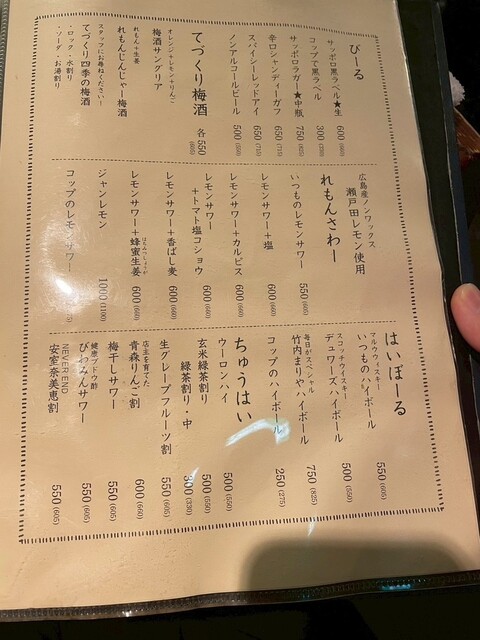 びーる
サッポロ黒ラベル★生 600 (660)
コップで黒ラベル 300 (330)
サッポロラガー★中瓶 750 (825)
辛口シャンディーガフ 650 (715)
スパイシーレッドアイ 650 (715)
ノンアルコールビール 500 (550)
てづくり梅酒 各550 (605)
オレンジ+レモン+りんご
梅酒サングリア
れもん+生姜
れもんじんじゃー梅酒
スタッフにお尋ねください〜
てづくり四季の梅酒
・ロック・水割り
・ソーダ・お湯割り
広島産ノンワックス
瀬戸田レモン使用
れもんさわー
いつものレモンサワー 550 (605)
レモンサワー+塩 600 (660)
レモンサワー+カルピス 600 (660)
レモンサワー
+トマト塩コショウ 600 (660)
レモンサワー+香ばし麦 600 (660)
レモンサワー+蜂蜜生姜 600 (660)
はちみつしょうが
ジャンレモン 1000 (1100)
コップのレモンサワー
はいぼーる
マルウウィスキー
いつものハイボール 550 (605)
スコッチウイスキー
デュワーズハイボール 500 (550)
毎日がスペシャル
竹内まりやハイボール 750 (825)
コップのハイボール 250 (275)
ちゅうはい
ウーロンハイ 500 (550)
玄米緑茶割り 500 (550)
緑茶割り・中 300 (330)
生グレープフルーツ割 550 (605)
店主を育てた
青森りんご割 600 (660)
梅干しサワー 550 (605)
健康ブドウ酢
びわみんサワー 550 (605)
NEVER END
安室奈美恵割 550 (605)